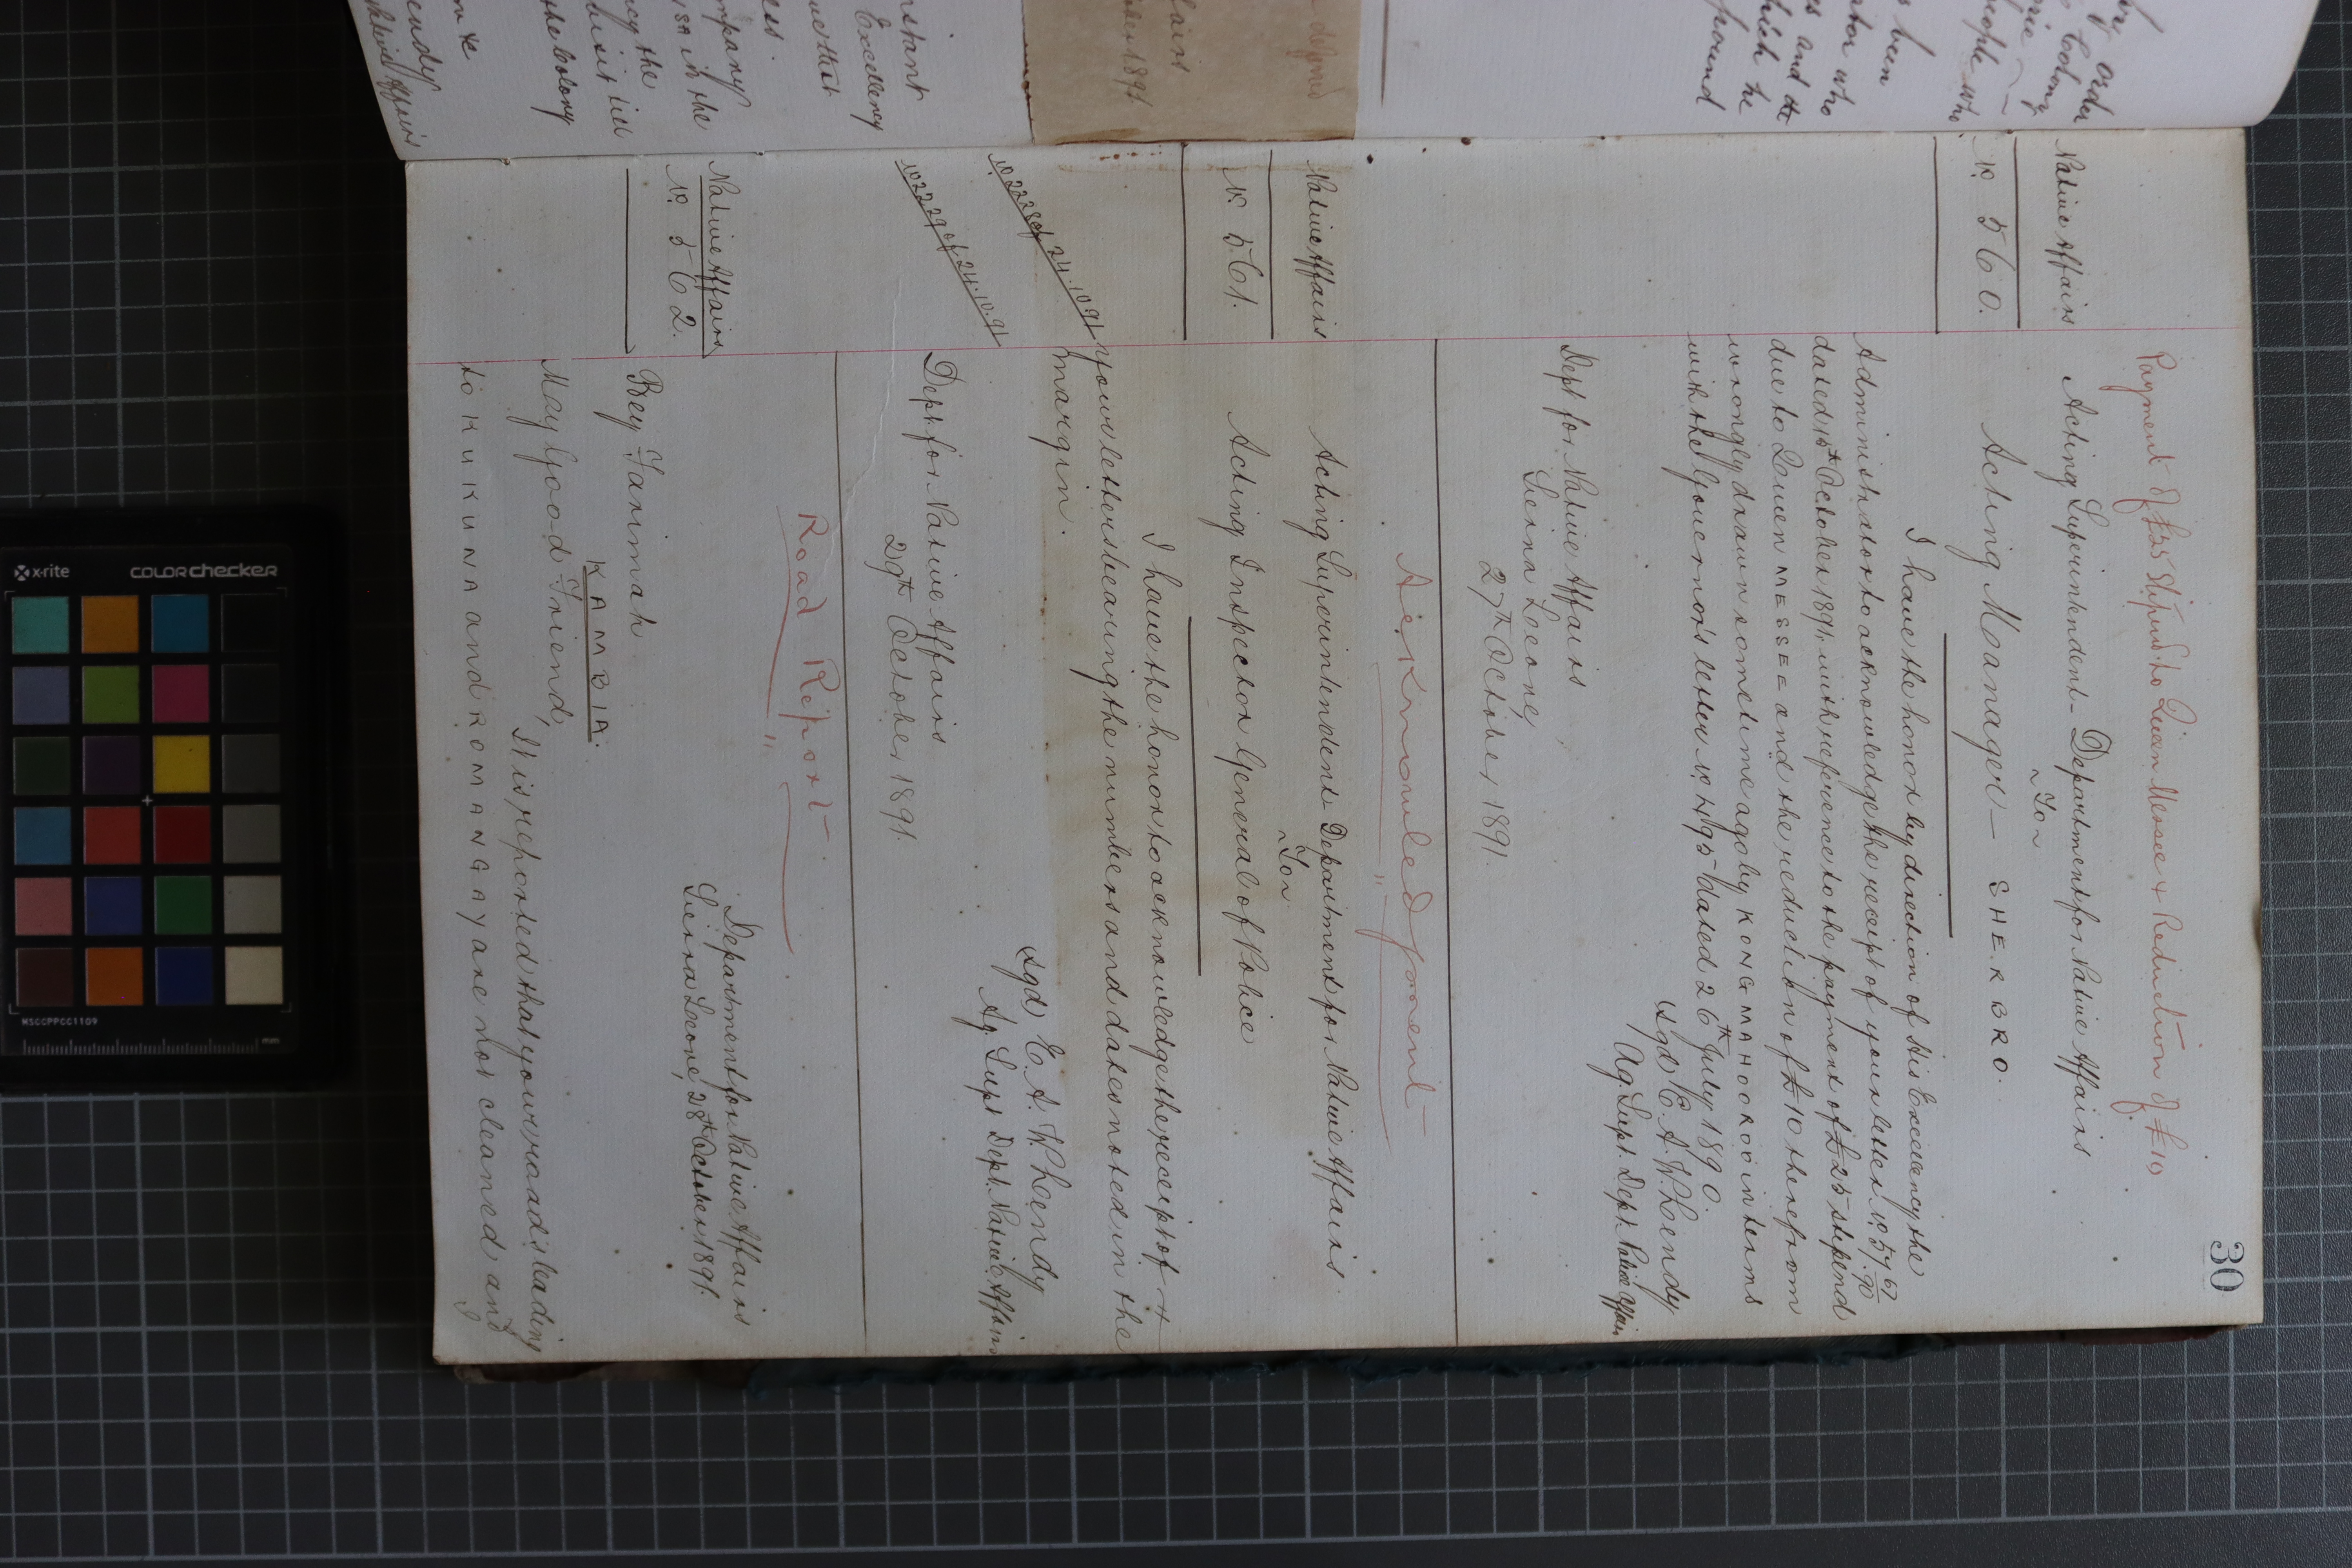 30
Payment of £25 Stipend to Queen Messee & Reduction of £10
Native Affairs
Acting Superintendent Department for Native Affairs
~ To ~
No. 560.
Acting Manager — SHERBRO.
I have the honor by direction of His Excellency the
Administrator to acknowledge the receipt of your letter No. 57
dated 15th October 1891. with reference to the payment of £25 stipend
due to Queen MESSE and the reduction of £10 therefrom
wrongly drawn sometime ago by KONG MAHOOROO in terms
with the Governor's letter No. H/95 dated 26th July 1890.
(Sgd) E. A. W. Lendy
Ag. Supt. Dept. Native Affairs
Dept for Native Affairs
Sierra Leone,
27th October 1891.
Acknowledgment
Native Affairs
Acting Superintendent Department for Native Affairs
~ To ~
No. 561.
Acting Inspector General of Police
I have the honor to acknowledge the receipt of
your letters bearing the numbers and dates noted in the
margin.
(Sgd) E. A. W. Lendy
Ag. Supt. Dept. Native Affairs
Dept for Native Affairs
29th October 1891.
Road Report
Native Affairs
No. 562.
Department for Native Affairs
Sierra Leone, 28th October 1891.
Bey Farimah
KAMBIA.
May Good Friend,
It is reported that your roads leading
to KUKUNA and ROMANGAY are not cleaned and
x-rite
colorchecker
MSCCPPCC1109
mm